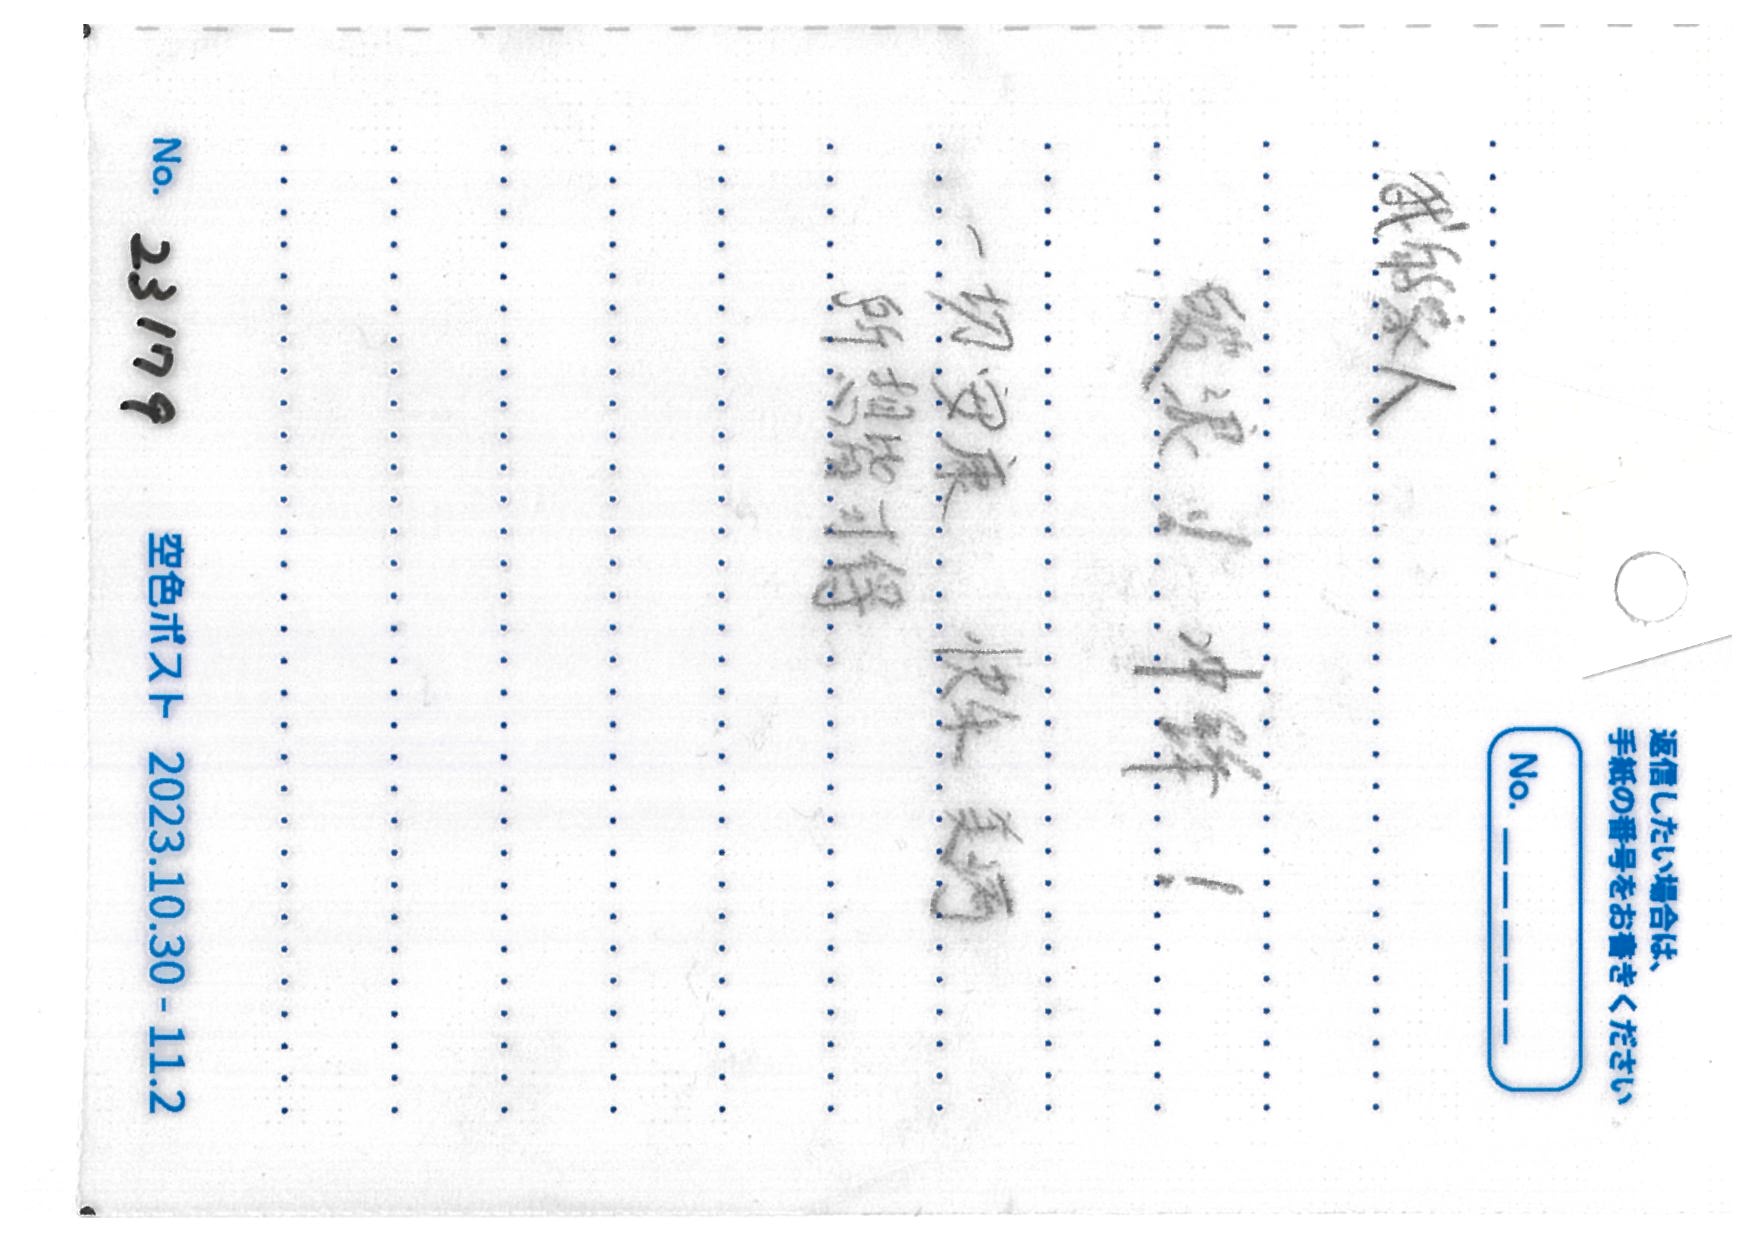 返信したい場合は、
手紙の番号をお書きください
No. _ _ _ _ _
我的家人
破浪！ 冲锋！
一切安康 快乐 美满
所想皆可得
No. 23179
空色ポスト 2023.10.30 - 11.2